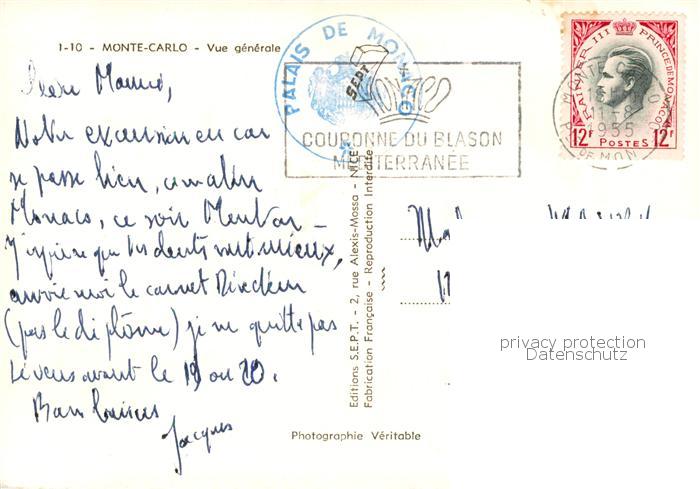 1-10 - MONTE-CARLO - Vue générale
PALAIS DE MONACO
SEPT
Monaco
COURONNE DU BLASON
MÉDITERRANÉE
RAINIER III PRINCE DE MONACO
12F POSTES 12F
MONTE-CARLO
1955
PTE DE MON
Notre excursion en car
se passe bien, ce matin
Monaco, ce soir Menton -
J'espère que tes dents vont mieux,
envoie moi le carnet
(pas le diplôme) je ne quitte pas
avant le 19 ou 20.
Bons baisers
Jacques
Editions S.E.P.T. - 2, rue Alexis-Mossa - NICE
Fabrication Française - Reproduction Interdite
Photographie Véritable
privacy protection
Datenschutz